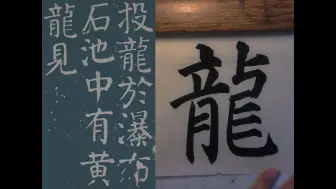 投龍於瀑布
石池中有黄
龍見
龍